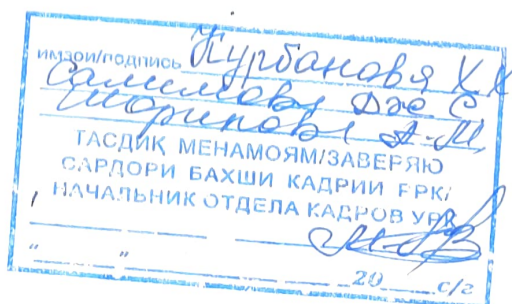 имзои/подпись Курбанова Х.К
Салимова Дж С,
Шарипова А.М,
ТАСДИҚ МЕНАМОЯМ/ЗАВЕРЯЮ
САРДОРИ БАХШИ КАДРИИ РРК/
НАЧАЛЬНИК ОТДЕЛА КАДРОВ УРК
" " 20 с/г